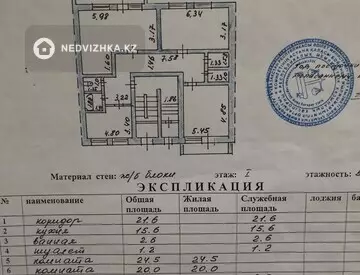 NEDVIZHKA.KZ
5,98
6,34
3.17
3.17
7.58
1.60
1.46
1.33
3.22
1.86
3.40
4.85
4.80
5.45
Материал стен: ж/б блоки этаж: I этажность:
ЭКСПЛИКАЦИЯ
№ наименование Общая площадь Жилая площадь Служебная площадь лоджия
1 коридор 21.6 21.6
2 кухня 15.6 15.6
3 ванная 2.6 2.6
4 туалет 1.2 1.2
5 комната 24.5 24.5
6 комната 20.0 20.0